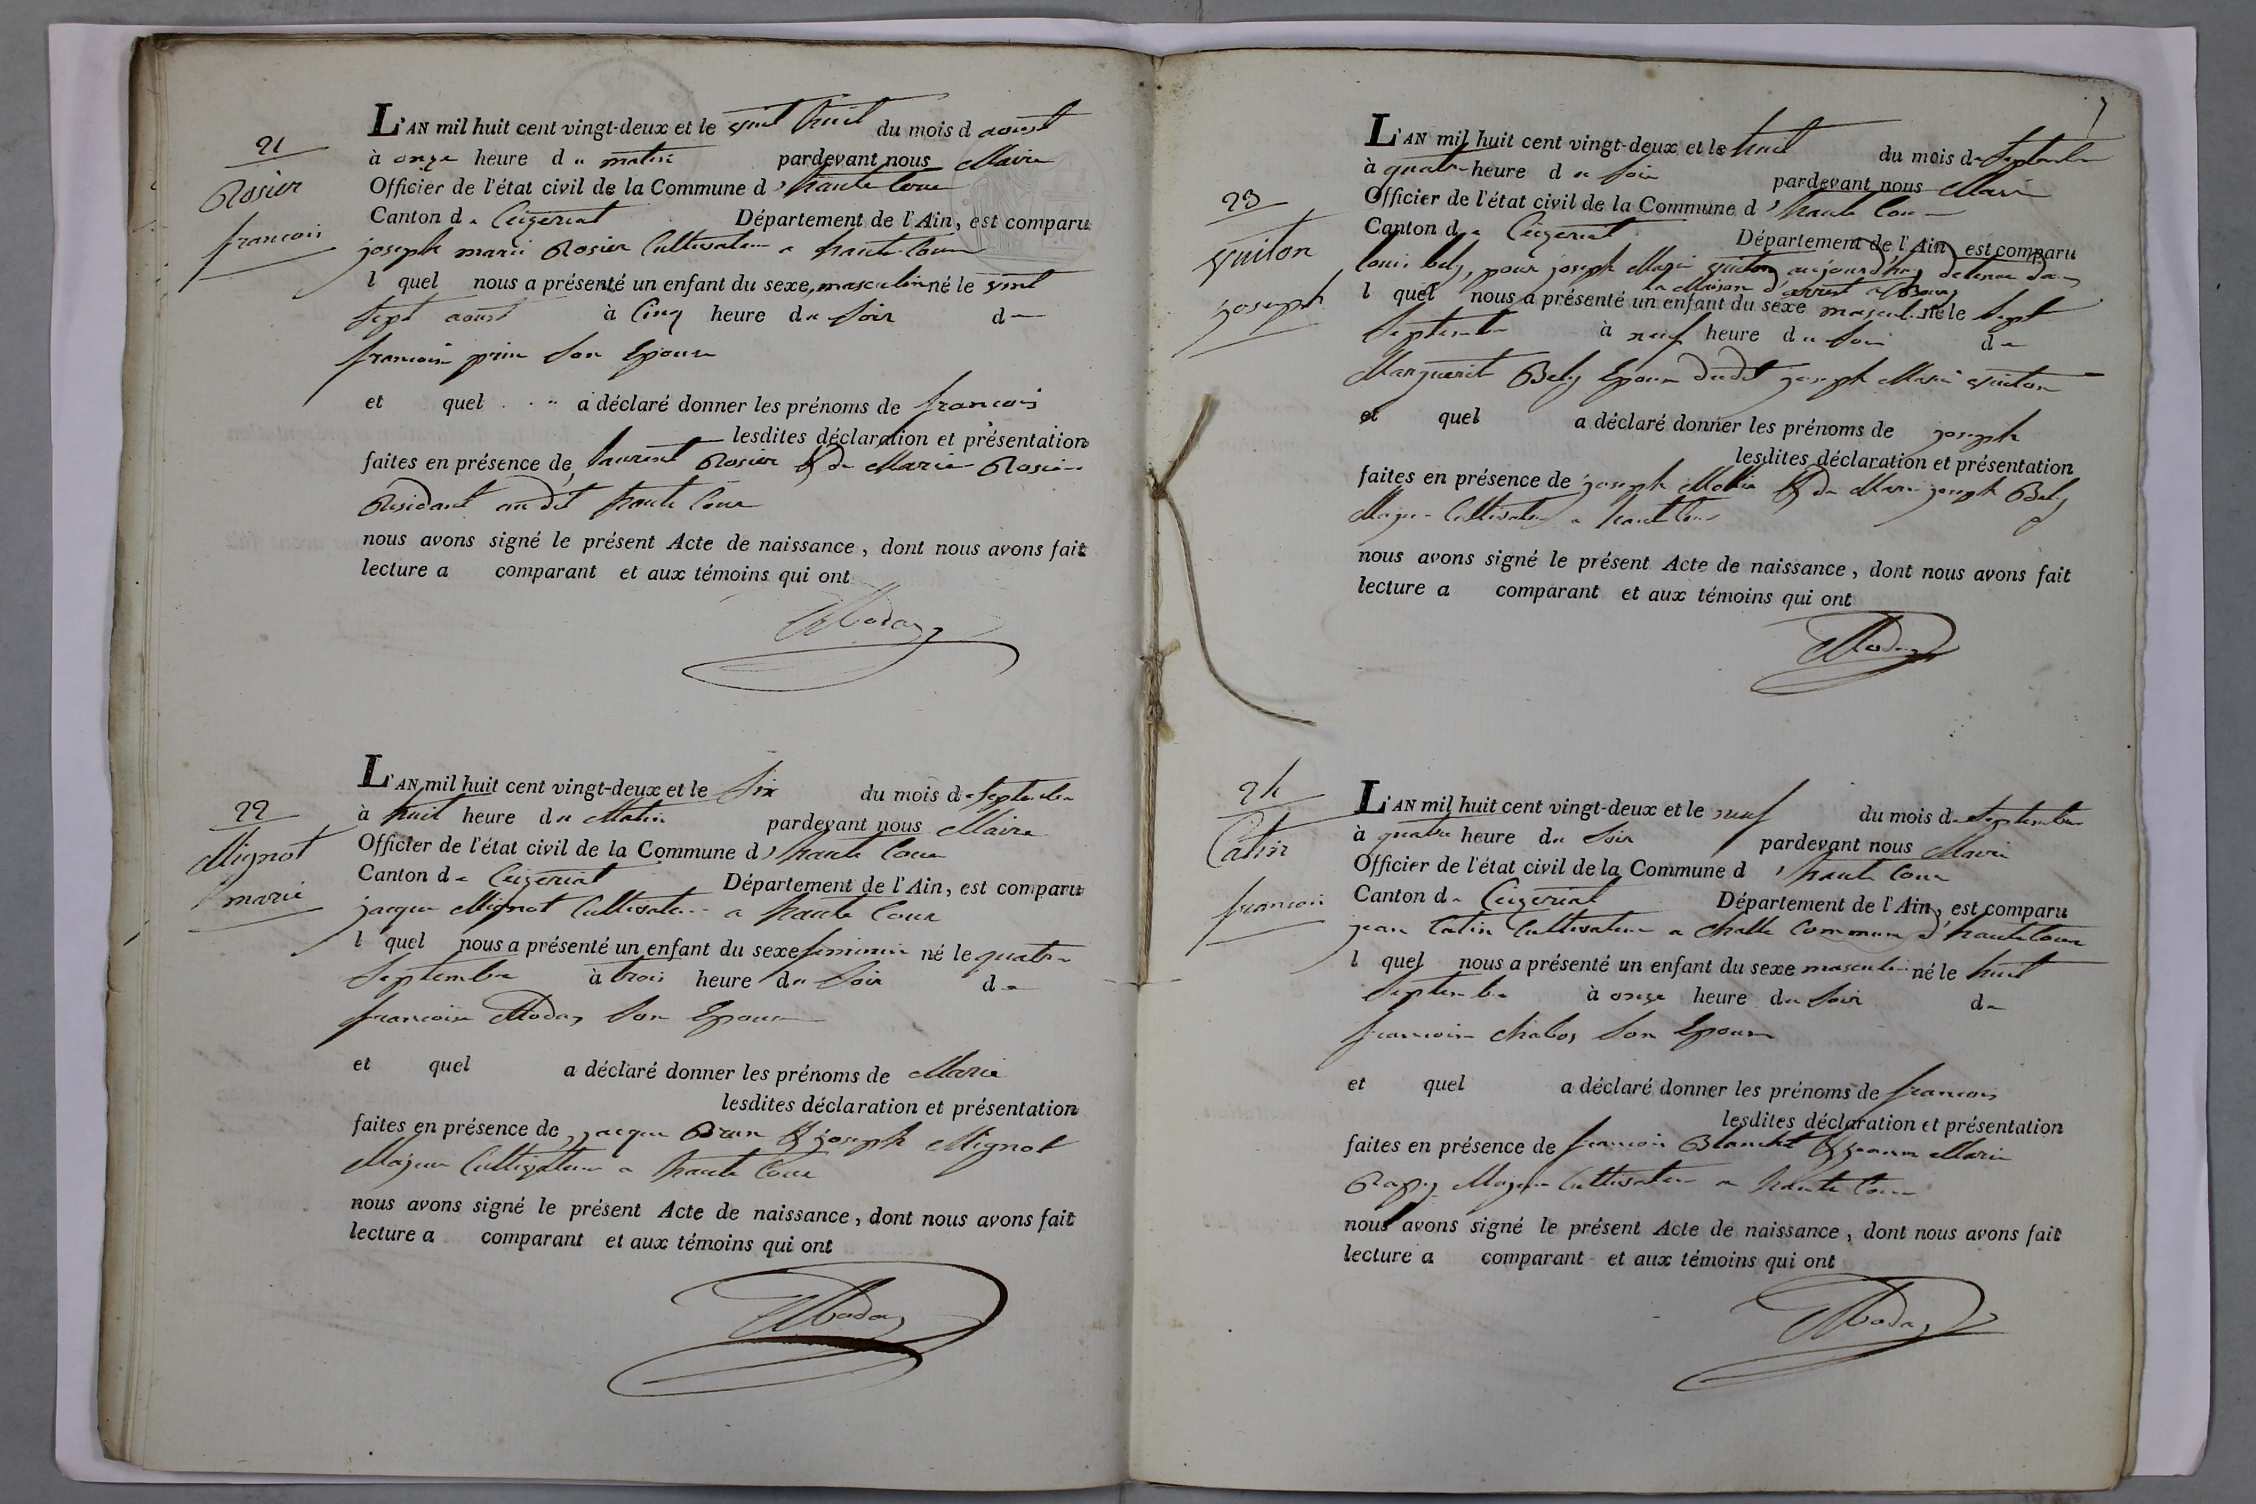 21
Rosier
francois
L'AN mil huit cent vingt-deux et le vint huit du mois d aoust
à onze heure du matin pardevant nous Maire
Officier de l'état civil de la Commune d'haute Cour
Canton de Ceizeriat Département de l'Ain, est comparu
joseph marie Rosier Cultivateur a haute-Cour
l quel nous a présenté un enfant du sexe, masculin né le vint
Sept aoust à Cinq heure du Soir de
francoise prin Son Epouse
et quel a déclaré donner les prénoms de francois
lesdites déclaration et présentation
faites en présence de, laurent Rosier & de Marie Rosier
Residant au dit haute Cour
nous avons signé le présent Acte de naissance, dont nous avons fait
lecture a comparant et aux témoins qui ont
Moda
22
Mignot
marie
L'AN mil huit cent vingt-deux et le Six du mois de Septembre
à huit heure du Matin pardevant nous Maire
Officier de l'état civil de la Commune d'haute Cour
Canton de Ceizeriat Département de l'Ain, est comparu
jacque Mignot Cultivateur a haute Cour
l quel nous a présenté un enfant du sexe feminin né le quatre
Septembre à trois heure du Soir de
francoise Moda Son Epouse
et quel a déclaré donner les prénoms de Marie
lesdites déclaration et présentation
faites en présence de jacque Brun & joseph Mignot
Majeur Cultivateur a haute Cour
nous avons signé le présent Acte de naissance, dont nous avons fait
lecture a comparant et aux témoins qui ont
Moda
7
23
vuiton
joseph
L'AN mil huit cent vingt-deux et le huit du mois de Septembre
à quatre heure du Soir pardevant nous Maire
Officier de l'état civil de la Commune d'haute Cour
Canton de Ceizeriat Département de l'Ain, est comparu
louis bely, pour joseph Marie vuiton aujourd'huy detenu dans
la Maison d'arrest a Bourg
l quel nous a présenté un enfant du sexe masculin né le Sept
Septembre à neuf heure du Soir de
Marguerite Bely Epouse dudit joseph Marie vuiton
et quel a déclaré donner les prénoms de joseph
lesdites déclaration et présentation
faites en présence de joseph & de Marie joseph Bely
Majeur Cultivateur a haute Cour
nous avons signé le présent Acte de naissance, dont nous avons fait
lecture a comparant et aux témoins qui ont
Moda
24
Catin
francois
L'AN mil huit cent vingt-deux et le neuf du mois de Septembre
à quatre heure du Soir pardevant nous Maire
Officier de l'état civil de la Commune d'haute Cour
Canton de Ceizeriat Département de l'Ain, est comparu
jean Catin Cultivateur a Challe Commune d'haute Cour
l quel nous a présenté un enfant du sexe masculin né le huit
Septembre à onze heure du Soir de
francoise Chabos Son Epouse
et quel a déclaré donner les prénoms de francois
lesdites déclaration et présentation
faites en présence de francois Blanchet & jeanne Marie
Majeur Cultivateur a haute Cour
nous avons signé le présent Acte de naissance, dont nous avons fait
lecture a comparant et aux témoins qui ont
Moda